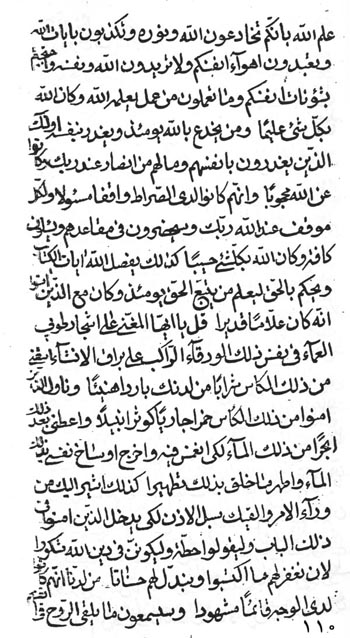 علم الله بانكم تخادعون الله ونوره وتكذبون بايات الله
وتعبدون اهوآء انفسكم ولا تريدون الله وبنفسه
شئونات انفسكم وما تعملون من عمل يعلمه الله وكان الله
بكل شئ عليما ومن يخدع بالله يومئذ ويغدر بنفسه اولئك
الذين يغدرون بانفسهم وما لهم من انصار عند ربك
عن الله محجوبا وانهم كانوا لدى الصراط واقفا مسئولا ولكل
موقف عند الله ربك وسيحضرون في مقاعدهم
كافة وكان الله بكل شئ حسيبا كذلك يفصل الله ايات الكتاب
ويحكم بالحق ليعلم من يتبع الحق يومئذ وكان مع الذين
انه كان علاما قديرا قل يا ايها المغني على اشجار طوبى
العمآء في نفس ذلك الورقآء الراكب على براق الانشآء
من ذلك الكاس شرابا من لدنك باردا هنيئا وناول الذين
امنوا من ذلك الكاس خمرا جاريا كوثرا بديلا واعطني بعد ذلك
ابحرا من ذلك المآء لكي انغمس فيه واخرج اوساخ نفسي بذلك
المآء واطهر ما خلقي بذلك تطهيرا كذلك اشير اليك من
ورآء الامر والقيك سبل الاذن لكي يدخل الذين امنوا في
ذلك الباب وليقولوا حطة وليكونن في دين الله شكورا
لان نغفر لهم ما اكتسبوا ونبدل لهم حسناتا من لدنا انهم كانوا
لدى الوجه قائما مشهودا ويسمعون ما يلقي الروح في
١١٠